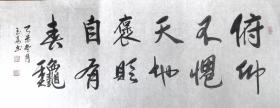 俯仰
不愧
天地
褒貶
自有
春龝